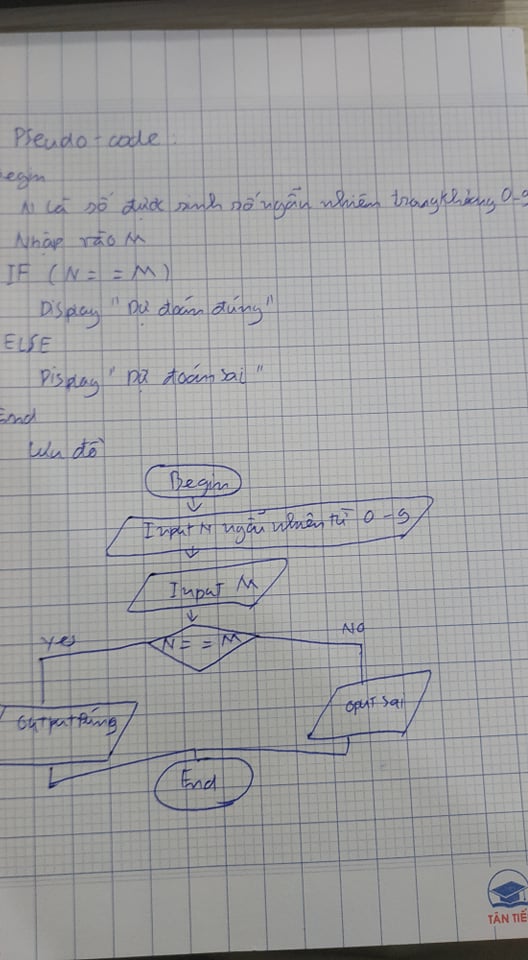 Pseudo-code:
Begin
N là số được sinh số ngẫu nhiên trong khoảng 0-9
Nhập vào M
IF (N = = M)
Display " Dự đoán đúng"
ELSE
Display " Dự đoán sai "
End
Lưu đồ
Begin
Input N ngẫu nhiên từ 0 - 9
Input M
N = = M
Yes
No
Output Đúng
Oput Sai
End
TÂN TIẾ